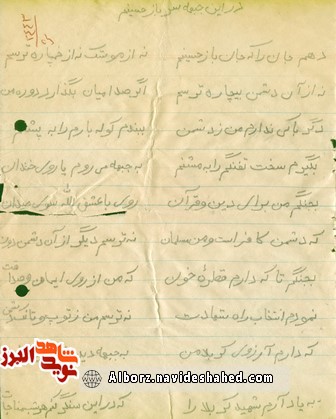 در این جبهه سنگر باز جستیم
دهم جان را که جان باز حسینم نه از موشک نه از خمپاره ترسم
نه از آن دشمن بیچاره ترسم اگر صدامیان بگذارد در ره من
دگر باکی ندارم من ز دشمن ببندم کوله بارم را به پشتم
بگیرم سفت تفنگم را به مشتم به جبهه می روم با روی خندان
بجنگم من برای دین و قرآن روم با عشق الله سوی میدان
که دشمن کافر است و من مسلمان نه ترسم دیگر از آن دشمن
بجنگم تا که دارم قطره خون که من از روی ایمان و صداقت
نمودم انتخاب راه شهادت نه ترسم من ز توپ و تانک
که دارم آرزوی کربلا من به جبهه
به یاد آرم شهید کربلا را که در این سنگر
نوید شاهد البرز
Alborz.navideshahed.com